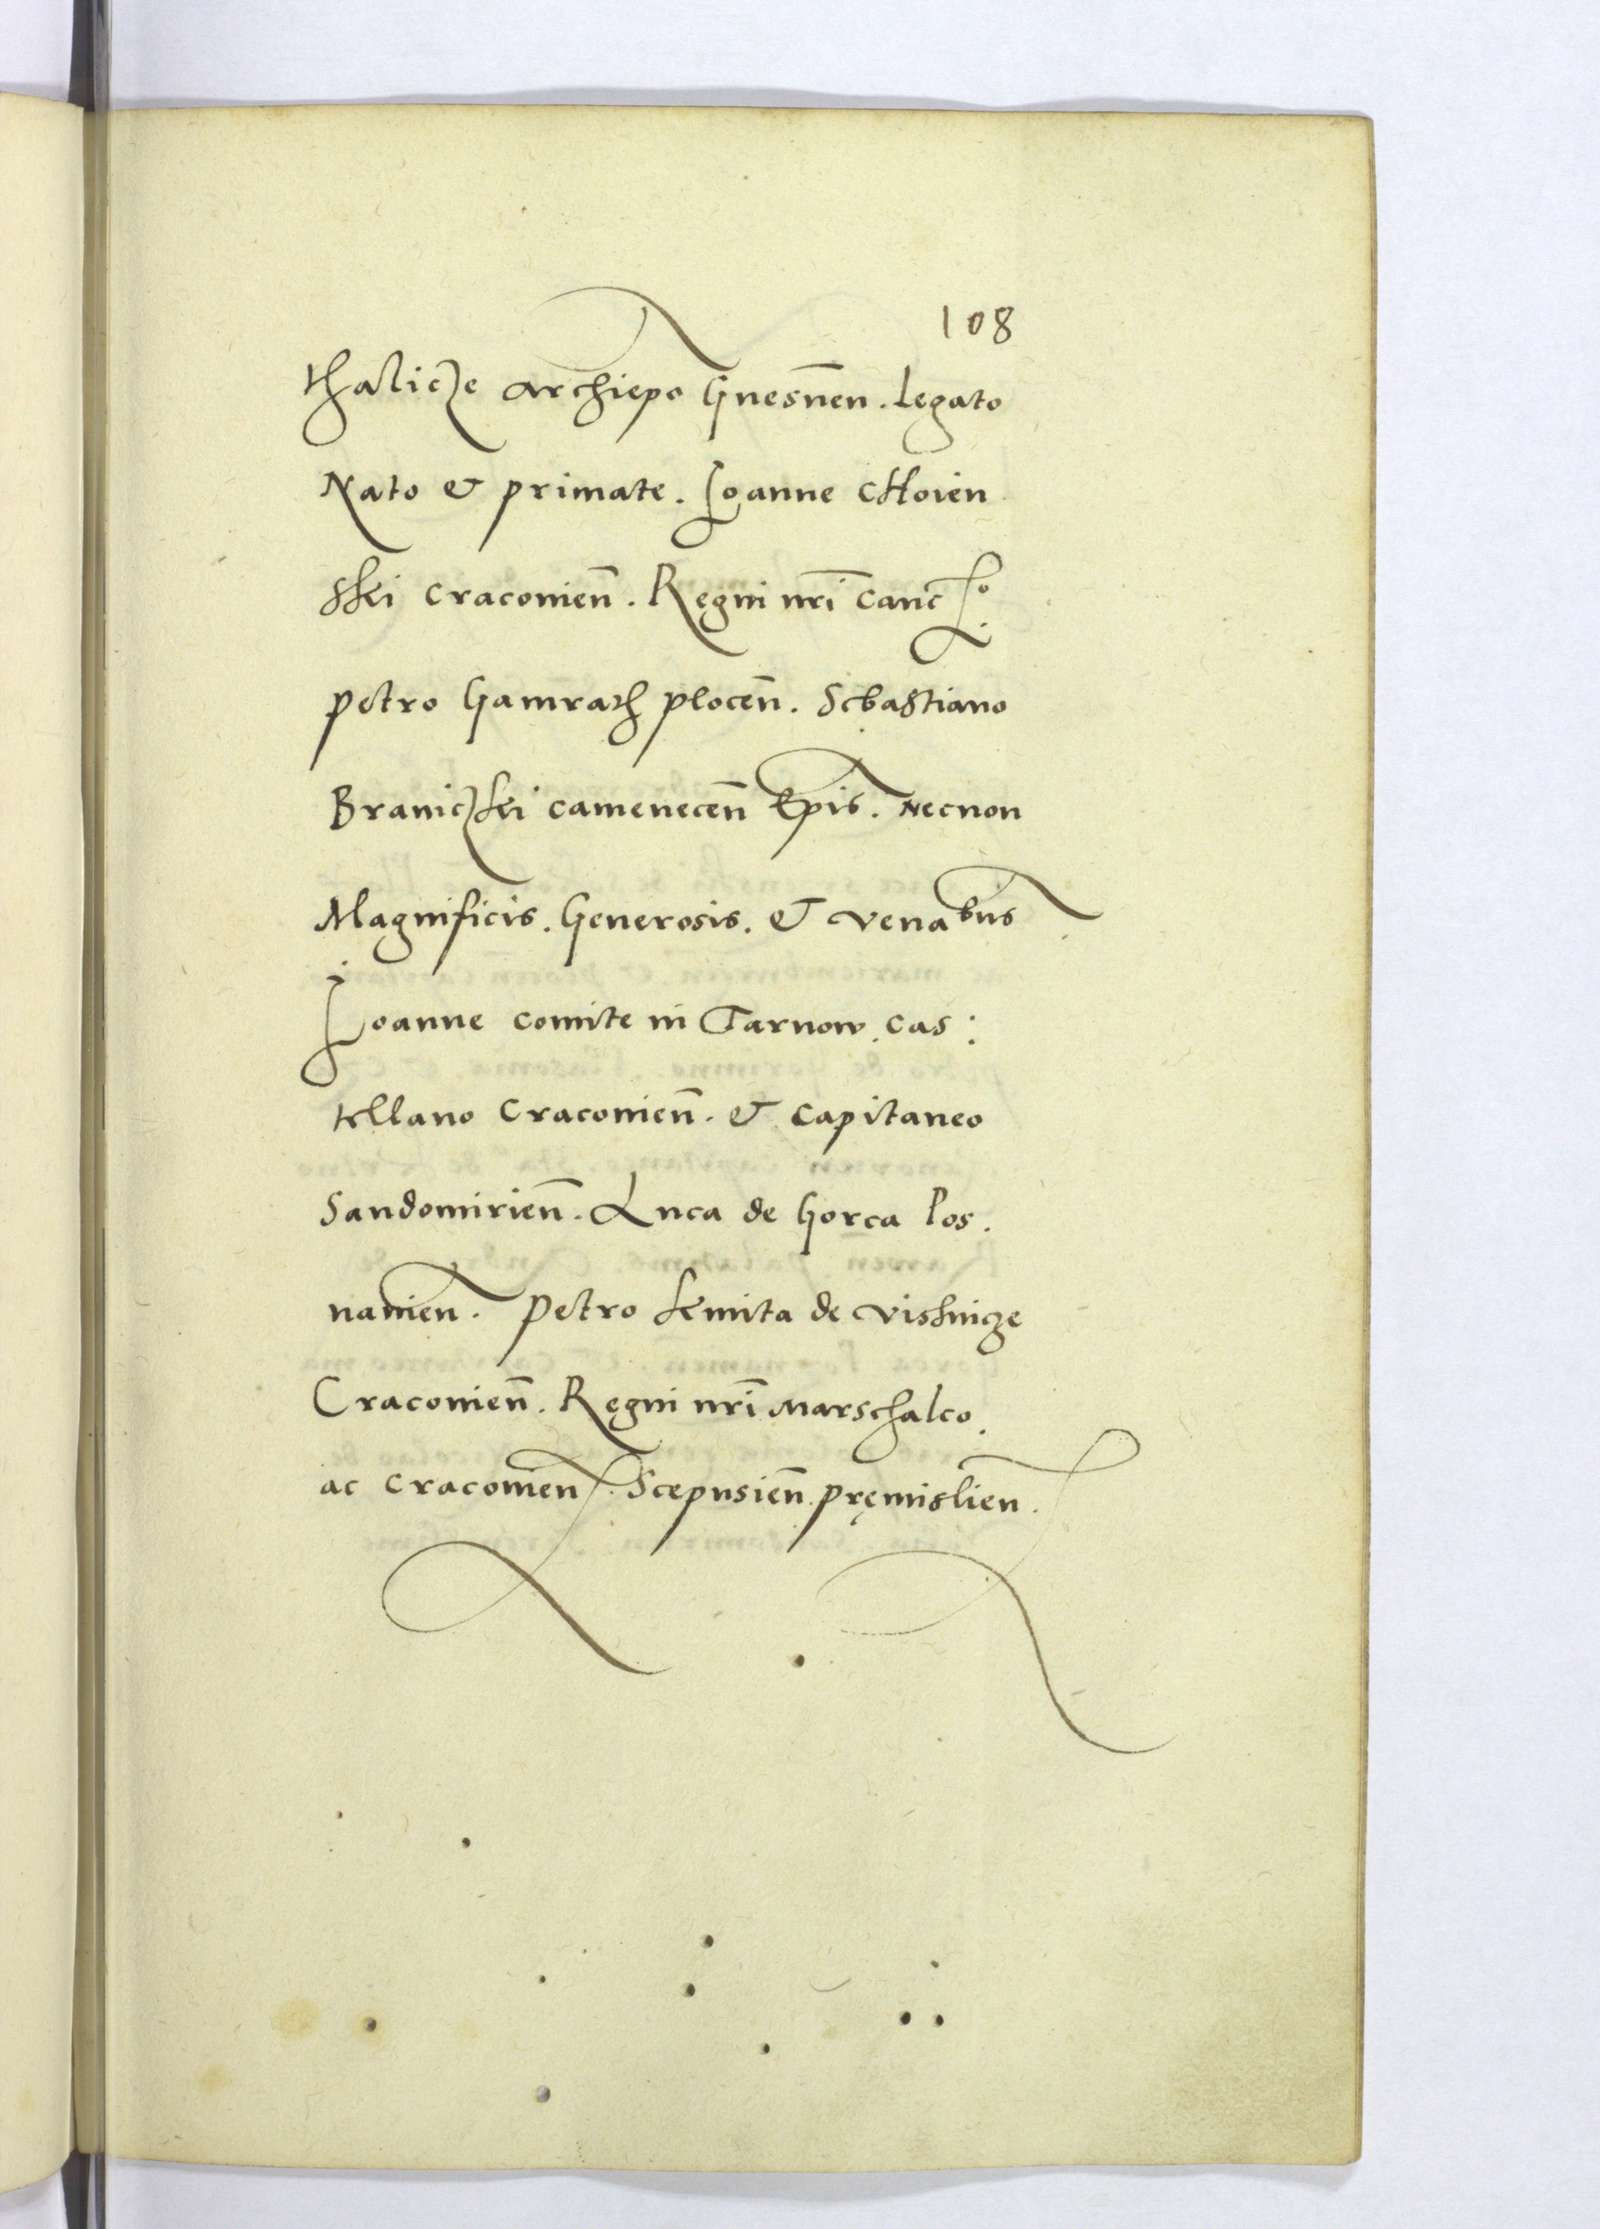 108
thalicze archiepo Gnesnen̄. Legato
Nato & primate. Joanne CHoien
ski Craconien̄. Regni nr̄i Canc̄ło.
petro Gamrath plocen̄. Sebastiano
Braniczki Camenecen̄ Ep̄is. Necnon
Magnificis. Generosis. & venabus
Joanne comite in Tarnow. cas:
tellano Craconien̄. & capitaneo
Sandomirien̄. Luca de Gorca Pos.
nanien̄. Petro kmita de vishnicze
Craconien̄. Regni nr̄i Marschalco.
ac Craconien̄. Scepusien̄. pręmislien̄.